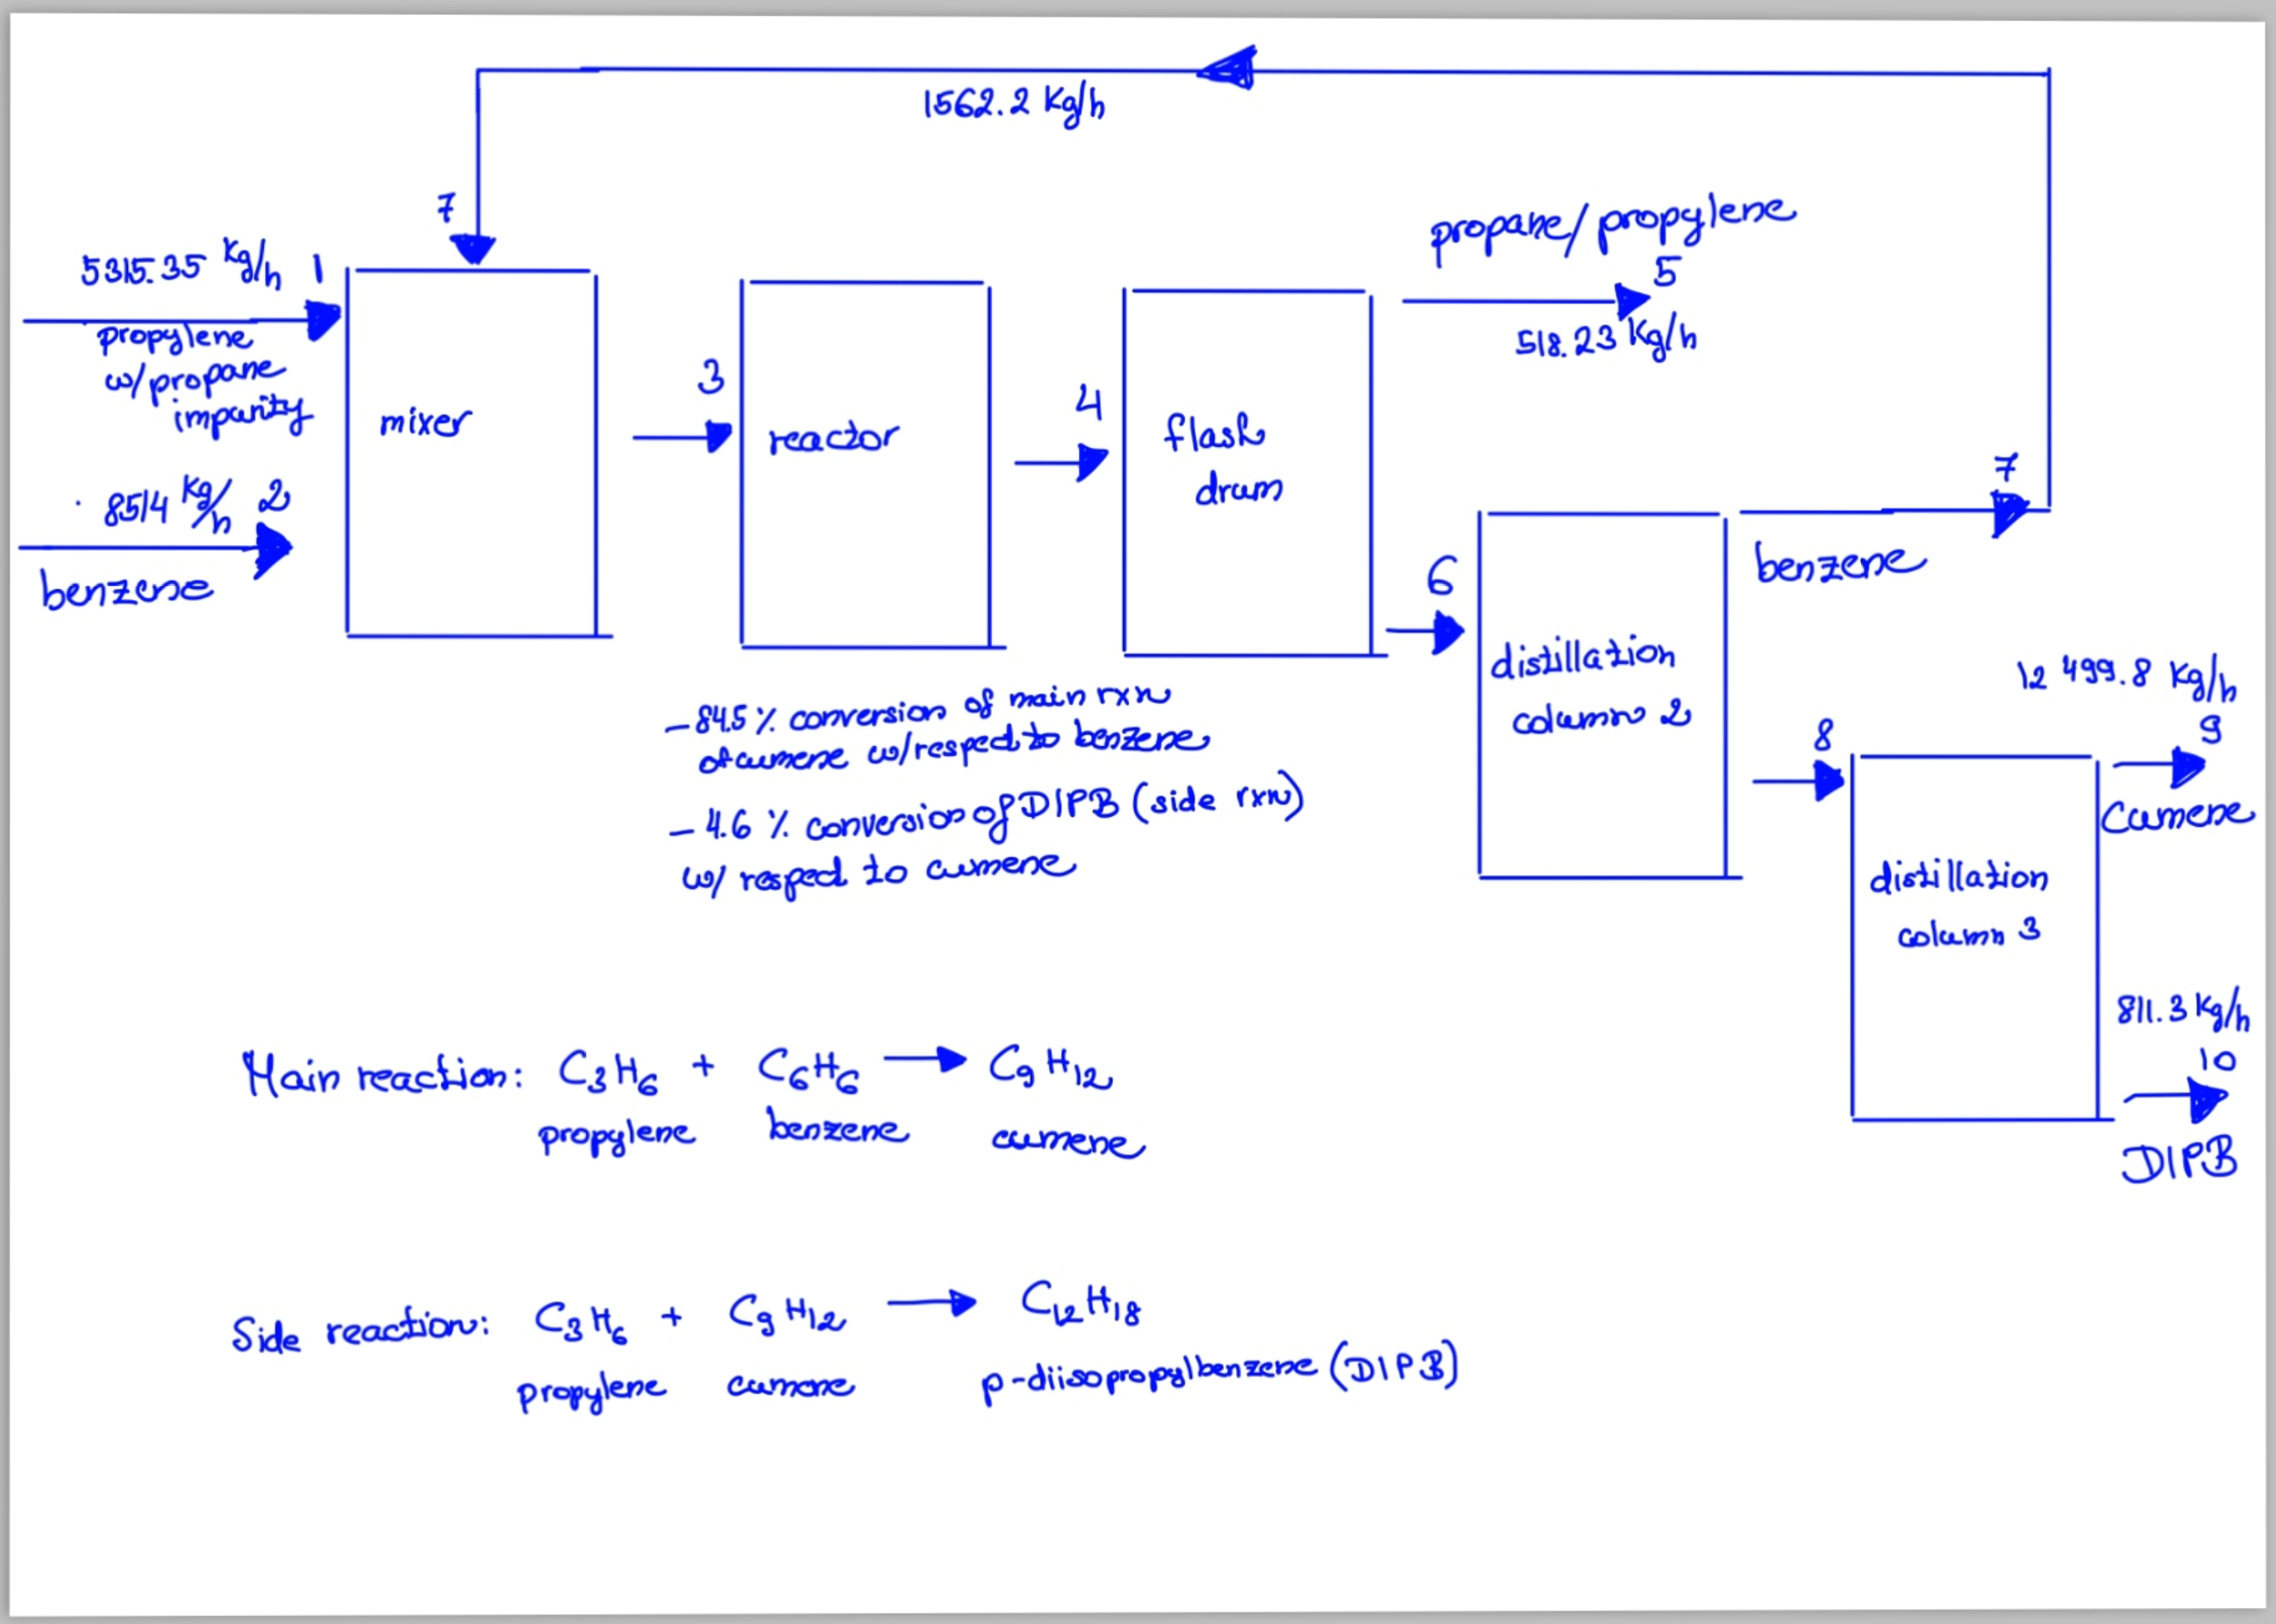 1562.2 Kg/h
7
5315.35 Kg/h 1
propylene
w/propane
impurity
8514 Kg/h 2
benzene
mixer
3
reactor
4
flash
drum
propane/propylene
5
518.23 Kg/h
6
distillation
column 2
7
benzene
8
distillation
column 3
12 499.8 Kg/h
9
Cumene
811.3 Kg/h
10
DIPB
- 84.5 % conversion of main rxn
of cumene w/respect to benzene
- 4.6 % conversion of DIPB (side rxn)
w/ respect to cumene
Main reaction: C3H6 + C6H6 → C9H12
propylene benzene cumene
Side reaction: C3H6 + C9H12 → C12H18
propylene cumene p-diisopropylbenzene (DIPB)